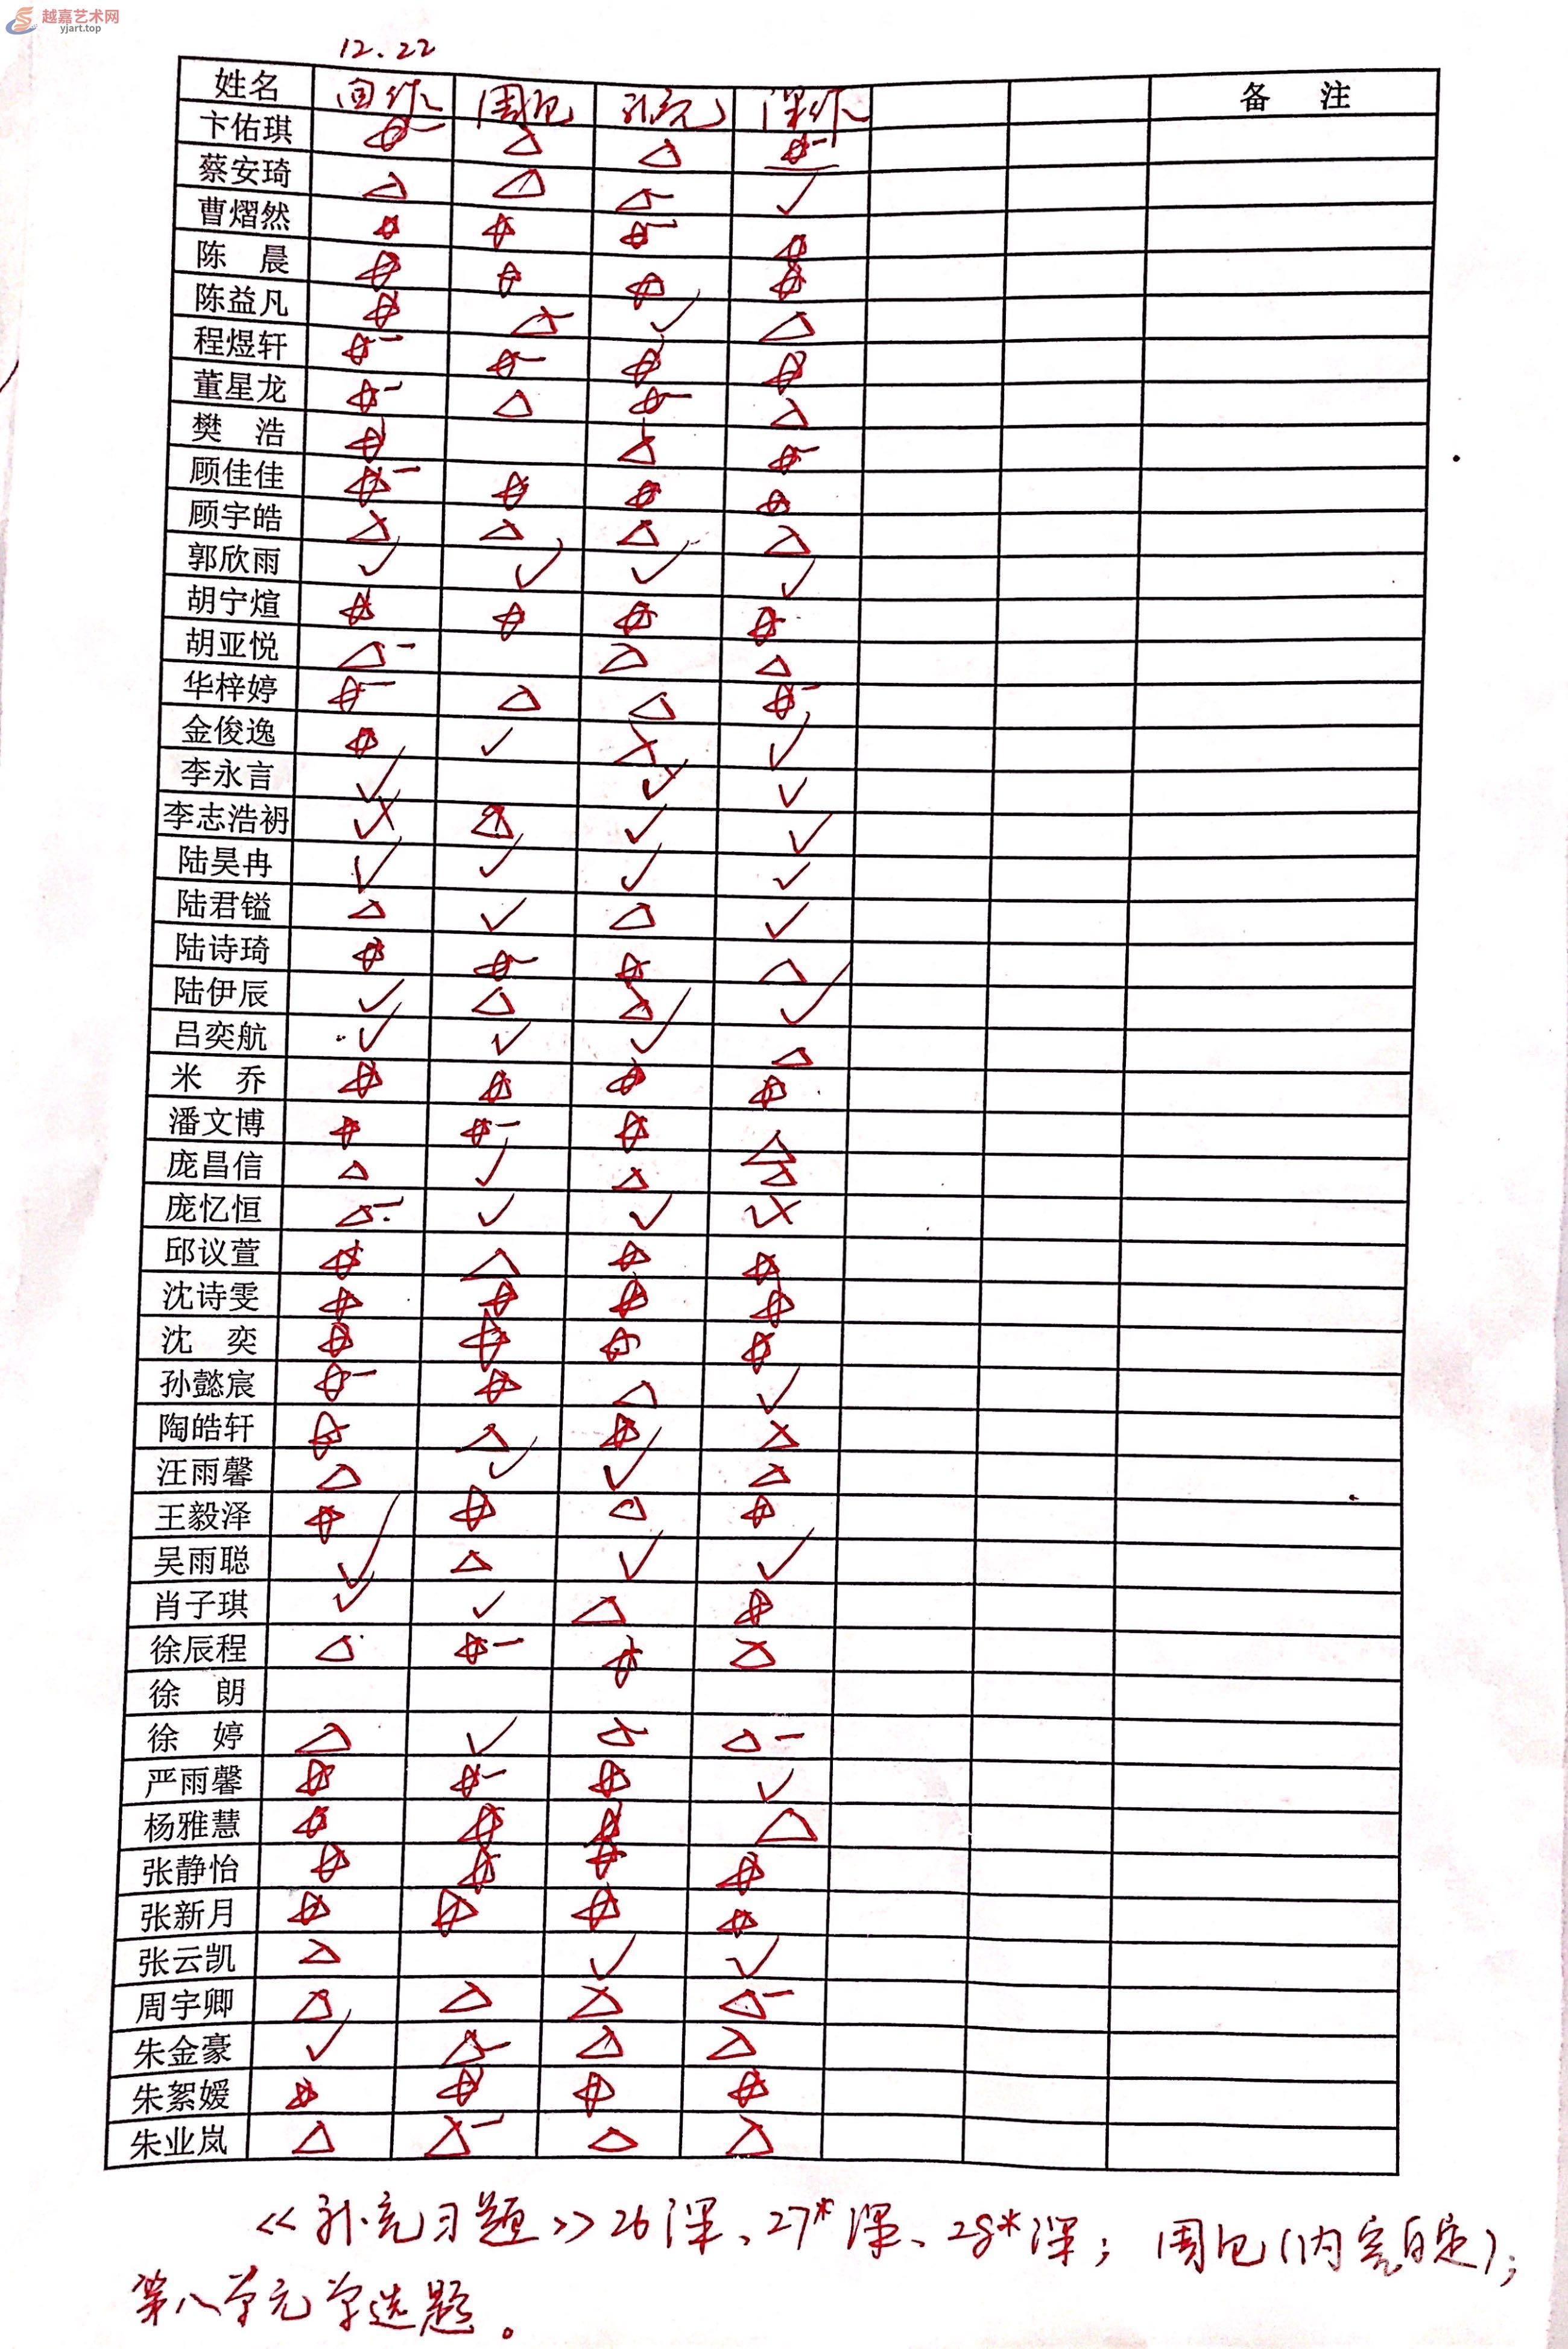 越嘉艺术网
yjart.top
12.22
姓名 回作 周记 补充 课作 备 注
卞佑琪
蔡安琦 △ △ △- ✓
曹熠然
陈 晨
陈益凡
程煜轩
董星龙
樊 浩
顾佳佳
顾宇皓 △ △ △ △
郭欣雨 ✓ ✓ ✓ ✓
胡宁煊
胡亚悦 △- △ △
华梓婷
金俊逸
李永言 ✓ ✓ ✓
李志浩礽
陆昊冉 ✓ ✓ ✓ ✓
陆君镒 △ ✓ △ ✓
陆诗琦
陆伊辰 ✓ △ △ ✓
吕奕航 ✓ ✓ ✓ △
米 乔
潘文博
庞昌信 △ ✓ △ △
庞忆恒
邱议萱
沈诗雯
沈 奕
孙懿宸
陶皓轩
汪雨馨 △ ✓ ✓ △
王毅泽
吴雨聪 ✓ △ ✓ ✓
肖子琪
徐辰程
徐 朗
徐 婷
严雨馨
杨雅慧
张静怡
张新月
张云凯 △ ✓ ✓
周宇卿 △ △ △ △-
朱金豪 ✓ △- △ △
朱絮嫒
朱业岚 △ △- △ △
《补充习题》26课、27*课、28*课；周记(内容自定)；
第八单元单选题。